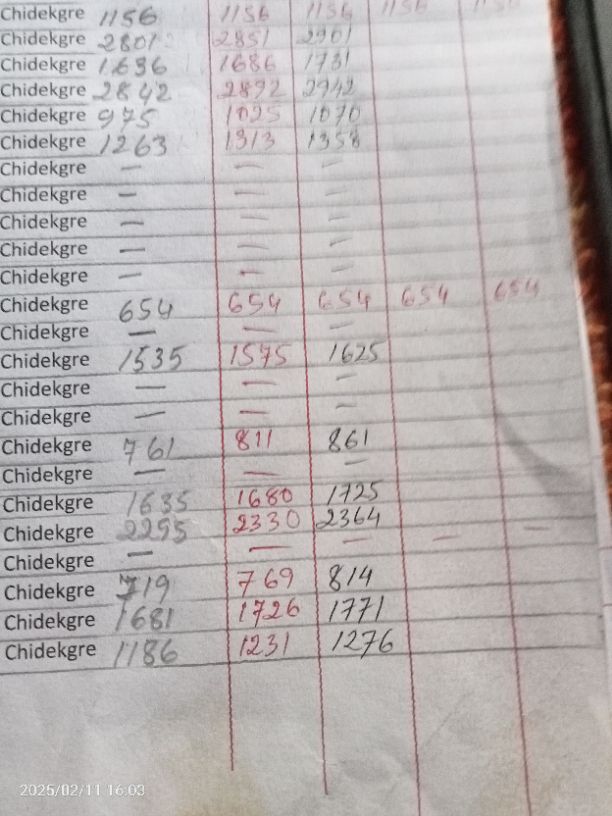 Chidekgre 1156 1156 1156 1156
Chidekgre 2801 2851 2901
Chidekgre 1636 1686 1731
Chidekgre 2842 2892 2942
Chidekgre 975 1025 1070
Chidekgre 1263 1313 1358
Chidekgre — — —
Chidekgre — — —
Chidekgre — — —
Chidekgre — — —
Chidekgre — — —
Chidekgre 654 654 654 654 654
Chidekgre — — —
Chidekgre 1535 1575 1625
Chidekgre — — —
Chidekgre — — —
Chidekgre 761 811 861
Chidekgre — — —
Chidekgre 1635 1680 1725
Chidekgre 2295 2330 2364
Chidekgre — — — — —
Chidekgre 719 769 814
Chidekgre 1681 1726 1771
Chidekgre 1186 1231 1276
2025/02/11 16:03